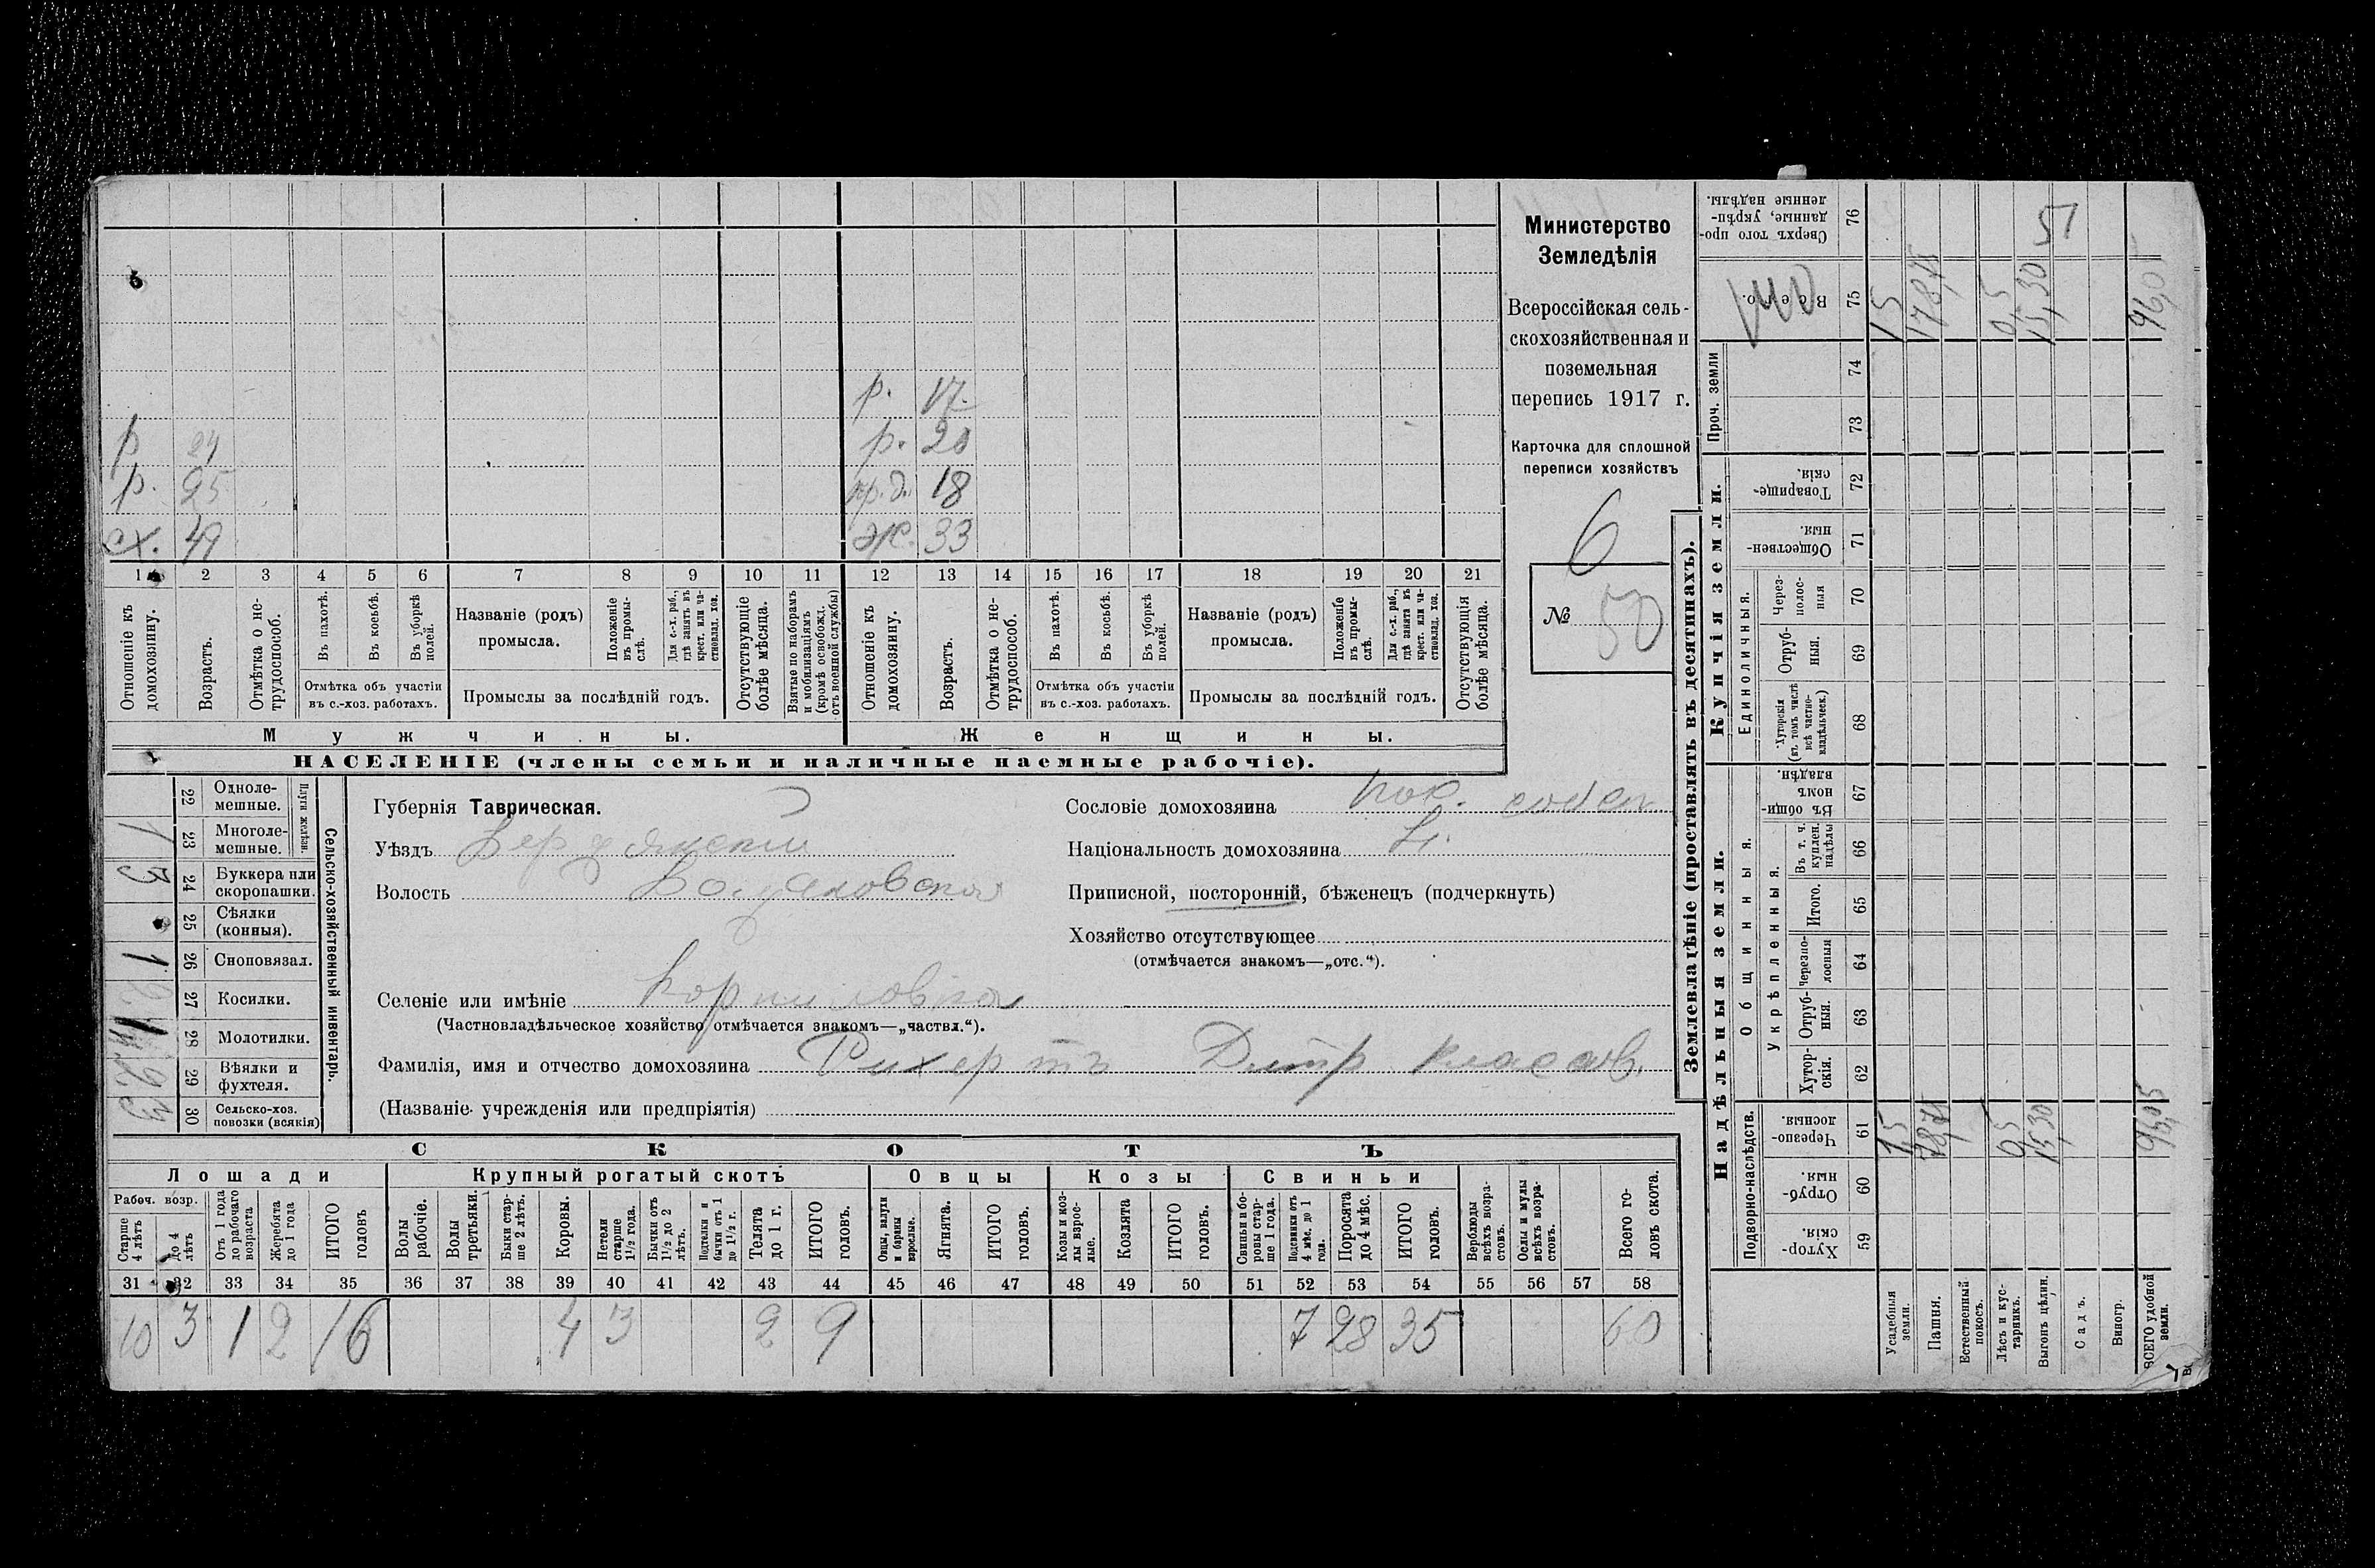 Министерство
Земледѣлія
Всероссійская сель-
скохозяйственная и
поземельная
перепись 1917 г.
Карточка для сплошной
переписи хозяйствъ
6
№ 50
р. 17.
р 24 р. 20
р. 25 пр. д. 18
сх. 49 ж. 33
1 2 3 4 5 6 7 8 9 10 11 12 13 14 15 16 17 18 19 20 21
Отношеніе къ домохозяину.
Возрастъ.
Отмѣтка о не-трудоспособ.
Въ пахотѣ.
Въ косьбѣ.
Въ уборкѣ полей.
Отмѣтка объ участіи
въ с.-хоз. работахъ.
Названіе (родъ)
промысла.
Положеніе въ промы-слѣ.
Для с.-х. раб., гдѣ занятъ въ крест. или ча-стновлад. хоз.
Промыслы за послѣдній годъ.
Отсутствующіе болѣе мѣсяца.
Взятые по наборамъ и мобилизаціямъ (кромѣ освобожд. отъ военной службы)
Отношеніе къ домохозяину.
Возрастъ.
Отмѣтка о не-трудоспособ.
Въ пахотѣ.
Въ косьбѣ.
Въ уборкѣ полей.
Отмѣтка объ участіи
въ с.-хоз. работахъ.
Названіе (родъ)
промысла.
Положеніе въ промы-слѣ.
Для с.-х. раб., гдѣ занята въ крест. или ча-стновлад. хоз.
Промыслы за послѣдній годъ.
Отсутствующія болѣе мѣсяца.
Мужчины. Женщины.
НАСЕЛЕНІЕ (члены семьи и наличные наемные рабочіе).
Сельско-хозяйственный инвентарь.
Плуги желѣзн.
22 Одноле-мешные.
23 Многоле-мешные. 1
24 Буккера или скоропашки. 3
25 Сѣялки (конныя).
26 Сноповязал. 1
27 Косилки.
28 Молотилки.
29 Вѣялки и фухтеля.
30 Сельско-хоз. повозки (всякія)
Губернія Таврическая.
Уѣздъ Бердянский
Волость
Селеніе или имѣніе
(Частновладѣльческое хозяйство отмѣчается знакомъ—„частвл.“).
Фамилія, имя и отчество домохозяина Рихертъ Дмтр. Класов.
(Названіе учрежденія или предпріятія)
Сословіе домохозяина пос. собсв
Національность домохозяина
Приписной, посторонній, бѣженецъ (подчеркнуть)
Хозяйство отсутствующее
(отмѣчается знакомъ—„отс.“).
СКОТЪ
Лошади Крупный рогатый скотъ Овцы Козы Свиньи
Рабоч. возр.
Старше 4 лѣтъ
до 4 лѣтъ
Отъ 1 года до рабочаго возраста
Жеребята до 1 года
ИТОГО головъ
Волы рабочіе.
Волы третьяки.
Быки стар-ше 2 лѣтъ.
Коровы.
Нетели старше 1½ года.
Бычки отъ 1½ до 2 лѣтъ.
Подтелки и бычки отъ 1 до 1½ г.
Телята до 1 г.
ИТОГО головъ.
Овцы, валухи и бараны взрослые.
Ягнята.
ИТОГО головъ.
Козы и коз-лы взрос-лые.
Козлята
ИТОГО головъ.
Свиньи и бо-ровы стар-ше 1 года.
Подсвинки отъ 4 мѣс. до 1 года.
Поросята до 4 мѣс.
ИТОГО головъ.
Верблюды всѣхъ возра-стовъ.
Ослы и мулы всѣхъ возра-стовъ.
Всего го-ловъ скота.
31 32 33 34 35 36 37 38 39 40 41 42 43 44 45 46 47 48 49 50 51 52 53 54 55 56 57 58
10 3 1 2 16 4 3 2 9 7 28 35 60
Землевладѣніе (проставлять въ десятинахъ).
Надѣльныя земли. Купчія земли. Проч. земли
Подворно-наслѣдств.
Общинныя.
Укрѣпленныя.
Единоличныя.
59 Хутор-скія.
60 Отруб-ныя.
61 Черезпо-лосныя.
62 Хутор-скія.
63 Отруб-ныя.
64 Черезпо-лосныя
65 Итого.
66 Въ т. ч. куплен. надѣлы
67 Въ общи-номъ владѣн.
68 Хуторскія (въ томъ числѣ всѣ частно-владѣльческ.)
69 Отруб-ныя.
70 Через-полос-ныя
71 Обществен-ныя.
72 Товарище-скія.
73
74
75 Всего.
76 Сверхъ того про-данные, укрѣп-ленные надѣлы.
Усадебныя земли. 1,5
Пашня. 78,75
Естественный покосъ.
Лѣсъ и кус-тарникъ. 0,5
Выгонъ цѣлин. 15,30
Садъ.
Виногр.
ВСЕГО удобной земли. 96,05
51